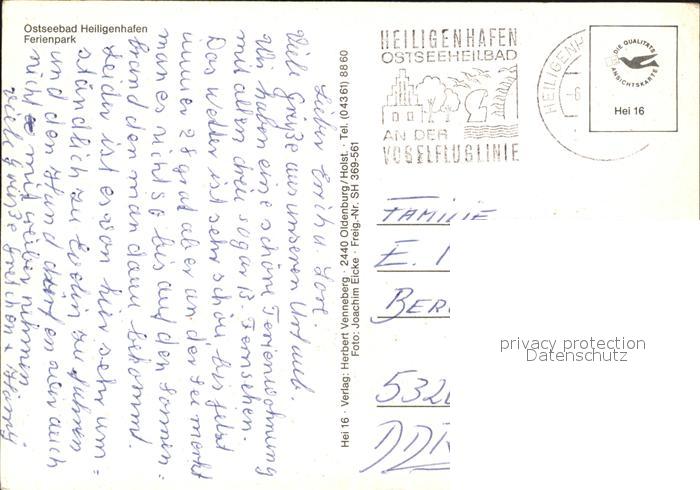 Ostseebad Heiligenhafen
Ferienpark
Lieber Erich u. Lore.
Viele Grüße aus unseren Urlaub.
Wir haben eine schöne Ferienwohnung
mit allem drin sogar 13 Fernsehen.
Das Wetter ist sehr schön bis jetzt
immer 28 grad aber an der See merkt
man es nicht so bis auf den Sonnen=
brand den man dann bekommt.
Leider ist es von hier sehr um=
ständlich zu Evelin zu fahren
und den Hund dürfen wir auch
nicht mit rüber nehmen
viele grüße Gretchen + Harry
Hei 16 · Verlag: Herbert Venneberg · 2440 Oldenburg/Holst. · Tel. (04361) 8860
Foto: Joachim Eicke · Freig.-Nr. SH 369-561
HEILIGENHAFEN
OSTSEEHEILBAD
AN DER
VOGELFLUGLINIE
HEILIGENH
DIE QUALITÄTS
ANSICHTSKARTE
Hei 16
FAMILIE
E.
BER
532
DDR
privacy protection
Datenschutz